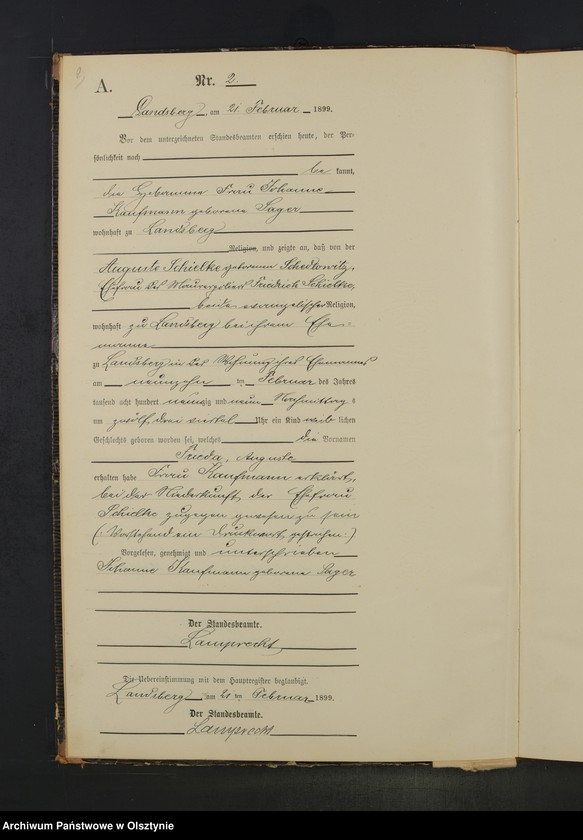 A.
Nr. 2.
Landsberg, am 21. Februar 1899.
Vor dem unterzeichneten Standesbeamten erschien heute, der Per-
sönlichkeit nach
be kannt,
die Hebamme Frau Johanne
Kaufmann geborene Sager
wohnhaft zu Landsberg
Religion, und zeigte an, daß von der
Auguste Schielke geborenen
Ehefrau des Maurergesellen Friedrich Schielke,
beide evangelischer Religion,
wohnhaft zu Landsberg bei ihrem Ehe-
manne
zu Landsberg in der Wohnung ihres Ehemannes
am neunzehn ten Februar des Jahres
tausend acht hundert neunzig und neun Nachmittags
um zwölf drei viertel Uhr ein Kind weib lichen
Geschlechts geboren worden sei, welches die Vornamen
Frieda, Auguste
erhalten habe. Frau Kaufmann erklärt,
bei der Niederkunft der Ehefrau
Schielke zugegen gewesen zu sein
(: Vorstehend ein Druckwort gestrichen :)
Vorgelesen, genehmigt und unterschrieben
Johanne Kaufmann geborene Sager
Der Standesbeamte.
Lamprecht
Die Uebereinstimmung mit dem Hauptregister beglaubigt.
Landsberg, am 21 ten Februar 1899.
Der Standesbeamte.
Lamprecht
Archiwum Państwowe w Olsztynie